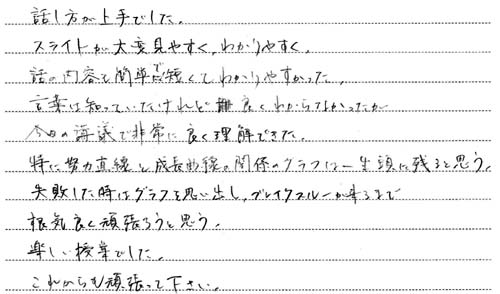 話し方が上手でした。
スライドが大変見やすく、わかりやすく、
話の内容も簡単で短くてわかりやすかった。
言葉は知っていたけれど良くわからなかったが
今日の講議で非常に良く理解できた。
特に努力直線と成長曲線の関係のグラフは一生頭に残ると思う。
失敗した時はグラフを思い出し、ブレイクスルーが来るまで
根気良く頑張ろうと思う。
楽しい授業でした。
これからも頑張って下さい。